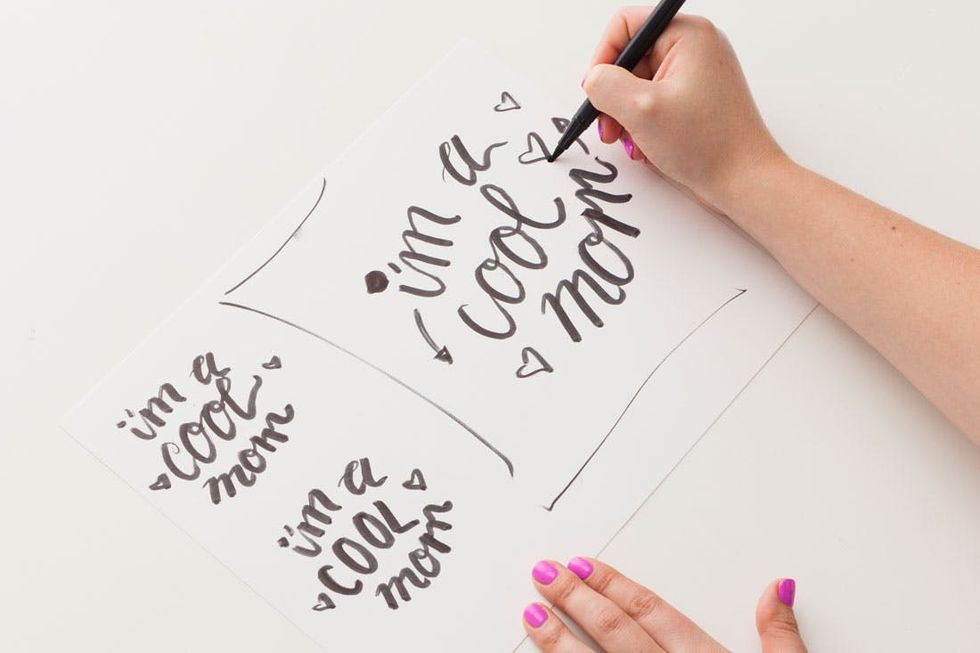 i'm a
cool
mom
i'm a
COOL
mom
i'm a
COOL
mom